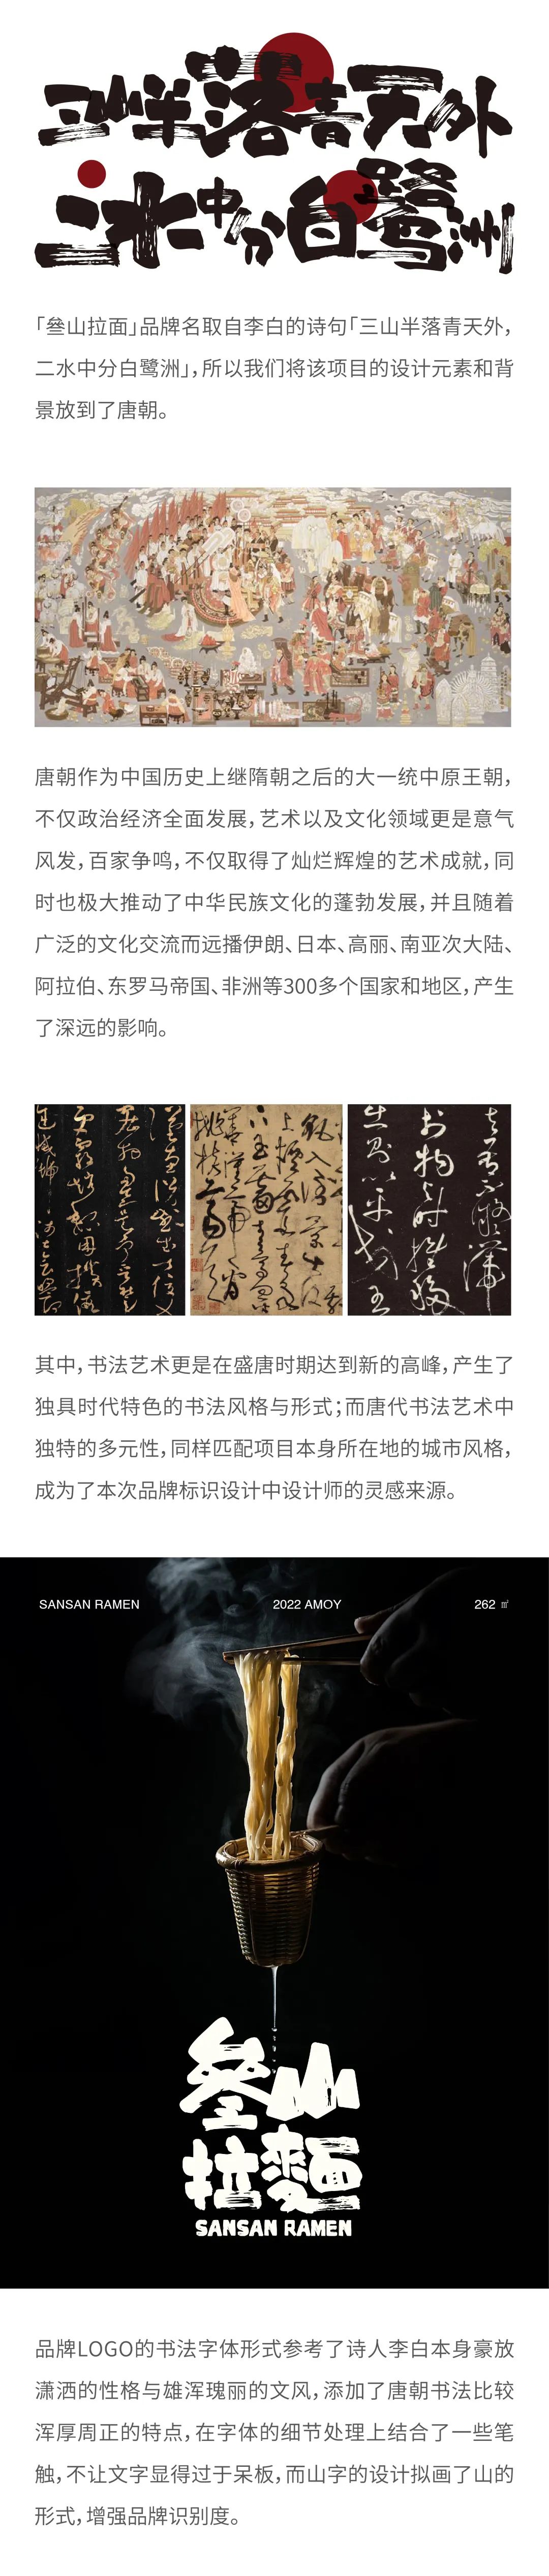 三山半落青天外
二水中分白鹭洲
「叄山拉面」品牌名取自李白的诗句「三山半落青天外，
二水中分白鹭洲」，所以我们将该项目的设计元素和背
景放到了唐朝。
唐朝作为中国历史上继隋朝之后的大一统中原王朝，
不仅政治经济全面发展，艺术以及文化领域更是意气
风发，百家争鸣，不仅取得了灿烂辉煌的艺术成就，同
时也极大推动了中华民族文化的蓬勃发展，并且随着
广泛的文化交流而远播伊朗、日本、高丽、南亚次大陆、
阿拉伯、东罗马帝国、非洲等300多个国家和地区，产生
了深远的影响。
其中，书法艺术更是在盛唐时期达到新的高峰，产生了
独具时代特色的书法风格与形式；而唐代书法艺术中
独特的多元性，同样匹配项目本身所在地的城市风格，
成为了本次品牌标识设计中设计师的灵感来源。
SANSAN RAMEN 2022 AMOY 262 ㎡
叄山
拉麵
SANSAN RAMEN
品牌LOGO的书法字体形式参考了诗人李白本身豪放
潇洒的性格与雄浑瑰丽的文风，添加了唐朝书法比较
浑厚周正的特点，在字体的细节处理上结合了一些笔
触，不让文字显得过于呆板，而山字的设计拟画了山的
形式，增强品牌识别度。